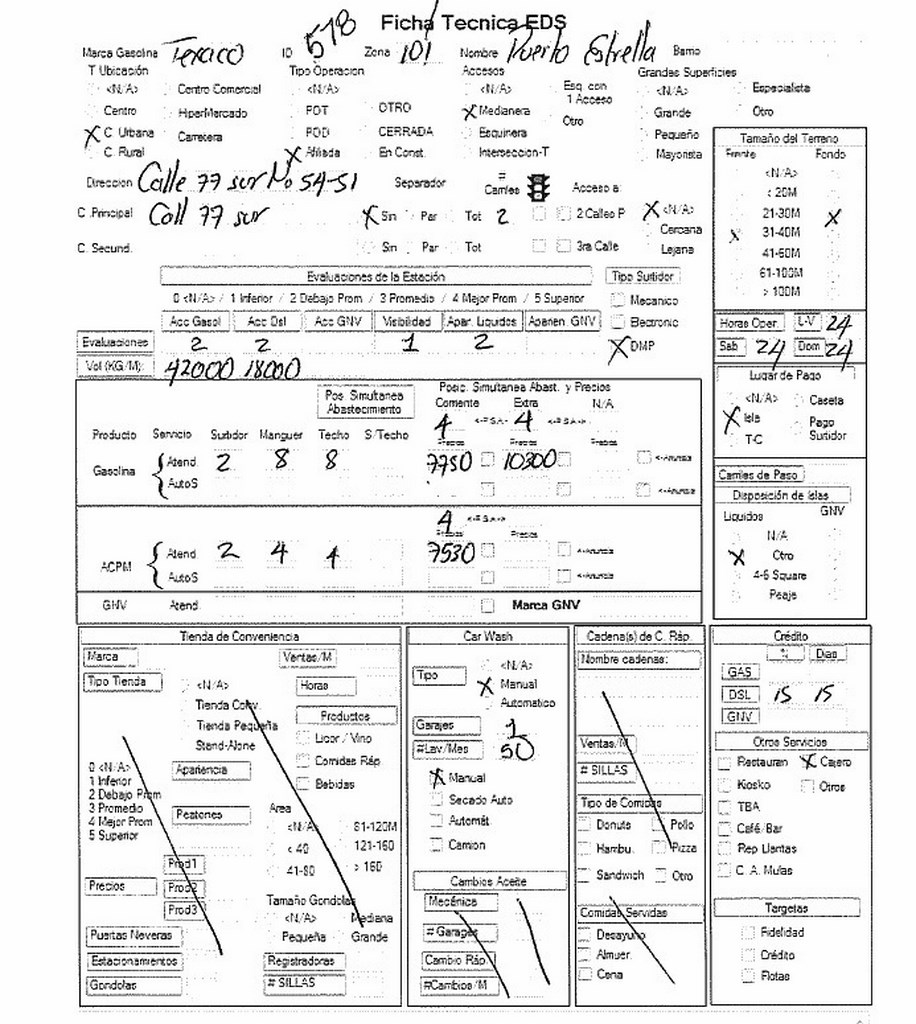 Ficha Tecnica EDS
Marca Gasolina Texaco ID 578 Zona 101 Nombre Puerto Estrella Barrio
T Ubicación Tipo Operacion Accesos Grandes Superficies
<N/A> Centro Comercial <N/A> <N/A> Esq. con 1 Acceso <N/A> Especialista
Centro HiperMercado POT OTRO X Medianera Otro Grande Otro
X C. Urbana Carretera POD CERRADA Esquinera Pequeño
C. Rural X Afiliada En Const. Interseccion-T Mayorista
Direccion Calle 77 sur No 54-51 Separador = Carriles Acceso a:
C. Principal Call 77 sur X Sin Par Tot 2 2 Calleo P X <N/A>
Cercana
C. Secund. Sin Par Tot 3ra Calle Lejana
Tamaño del Terreno
Frente Fondo
<N/A>
< 20M
21-30M X
X 31-40M
41-60M
61-100M
> 100M
Evaluaciones de la Estación Tipo Surtidor
0 <N/A> / 1 Inferior / 2 Debajo Prom / 3 Promedio / 4 Mejor Prom / 5 Superior Mecanico
Acc Gasol Acc Dsl Acc GNV Visibilidad Apar. Liquidos Aparien. GNV Electronic
Evaluaciones 2 2 1 2 X DMP
Vol (KG/M): 42000 18000
Horas Oper. L-V 24
Sab 24 Dom 24
Lugar de Pago
<N/A> Caseta
X Isla Pago Surtidor
T-C
Pos. Simultanea Abastecimiento Posic. Simultanea Abast. y Precios
Corriente Extra N/A
4 4
Producto Servicio Surtidor Manguer Techo S/Techo Precios Precios Precios
Gasolina Atend. 2 8 8 7750 10300 <-Anuncia
AutoS <-Anuncia
4
Precios Precios
ACPM Atend. 2 4 4 7530 <-Anuncia
AutoS <-Anuncia
GNV Atend. Marca GNV
Carriles de Paso
Disposición de Islas
Liquidos GNV
N/A
X Otro
4-6 Square
Pareja
Tienda de Conveniencia
Marca Ventas/M
Tipo Tienda <N/A> Horas
Tienda Conv.
Tienda Pequeña Productos
Stand-Alone Licor / Vino
0 <N/A> Apariencia Comidas Ráp
1 Inferior Bebidas
2 Debajo Prom
3 Promedio Peatones Area
4 Mejor Prom <N/A> 81-120M
5 Superior < 40 121-160
41-80 > 160
Prod1
Precios Prod2
Prod3 Tamaño Gondolas
<N/A> Mediana
Puertas Neveras Pequeña Grande
Estacionamientos Registradoras
Gondolas # SILLAS
Car Wash
Tipo <N/A>
X Manual
Automatico
Garajes 1
#Lav/Mes 50
X Manual
Secado Auto
Automát.
Camion
Cambios Aceite
Mecánica
# Garages
Cambio Ráp.
#Cambios/M
Cadena(s) de C. Ráp.
Nombre cadenas:
Ventas/M
# SILLAS
Tipo de Comidas
Donuts Pollo
Hambu. Pizza
Sandwich Otro
Comidas Servidas
Desayuno
Almuer.
Cena
Crédito
% Dias
GAS
DSL 15 15
GNV
Otros Servicios
Restauran X Cajero
Kiosko Otros
TBA
Café/Bar
Rep Llantas
C. A. Mulas
Targetas
Fidelidad
Crédito
Flotas